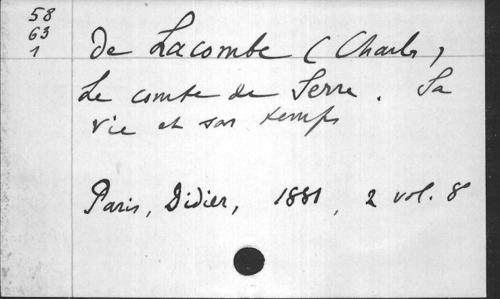 58
63
1
de Lacombe (Charles,
Le comte de Serre. Sa
vie et son temps
Paris, Didier, 1881, 2 vol. 8°